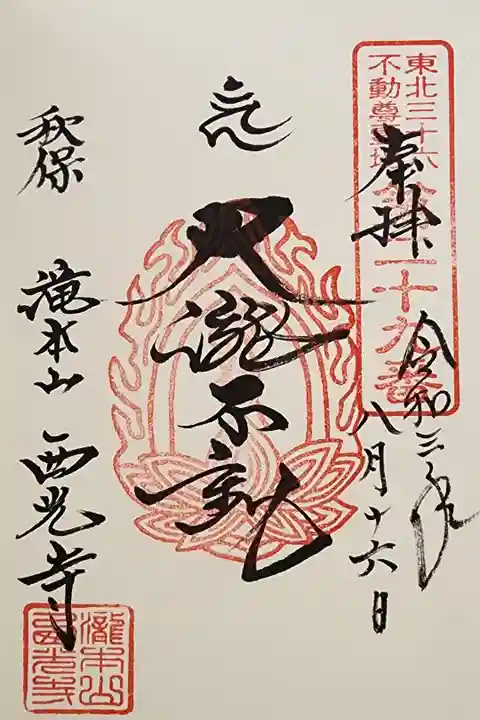 東北三十六
不動尊霊場
第二十九番
奉拝
令和三年
八月十六日
大瀧不動
秋保 滝本山 西光寺
瀧本山
西光寺